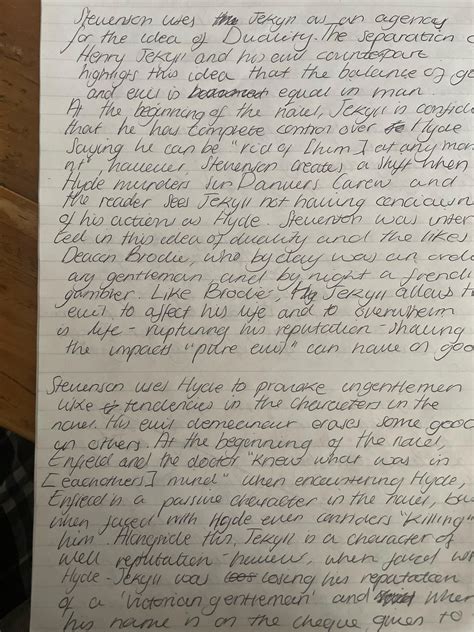 Stevenson uses the Jekyll as an agency
for the idea of Duality. The separation o
Henry Jekyll and his evil counterpart
highligts this idea that the balance of go
and evil is equal in man.
At the beginning of the novel, Jekyll is confide
that he has complete control over Hyde
saying he can be "rid of [him] at any mom
nt", however, Stevenson creates a shift when
Hyde murders Sir Danvers Carew and
the reader sees Jekyll not having
of his action as Hyde. Stevenson was inter
ted in this idea of duality and the likes
Deacon Brodie, who by day was an ordin
ary gentleman and by night a
gambler. Like Brodie, Jekyll allows t
evil to affect his life and to overwhelm
is life - rupturing his reputation - showing
the impacts "pure evil" can have on good
Stevenson uses Hyde to provoke ungentlemen
like tendencies in the characters in the
novel. His evil demeanour erases some good
in others. At the beginning of the novel,
Enfield and the doctor "knew what was in
[eachothers] mind" when encountering Hyde,
Enfield is a passive character in the novel, bu
when faced with Hyde even considers "killing"
him. Alongside this, Jekyll is a character of
well reputation - however, when faced wi
Hyde - Jekyll was losing his reputation
of a 'victorian gentleman' and when
his name is on the cheque given to